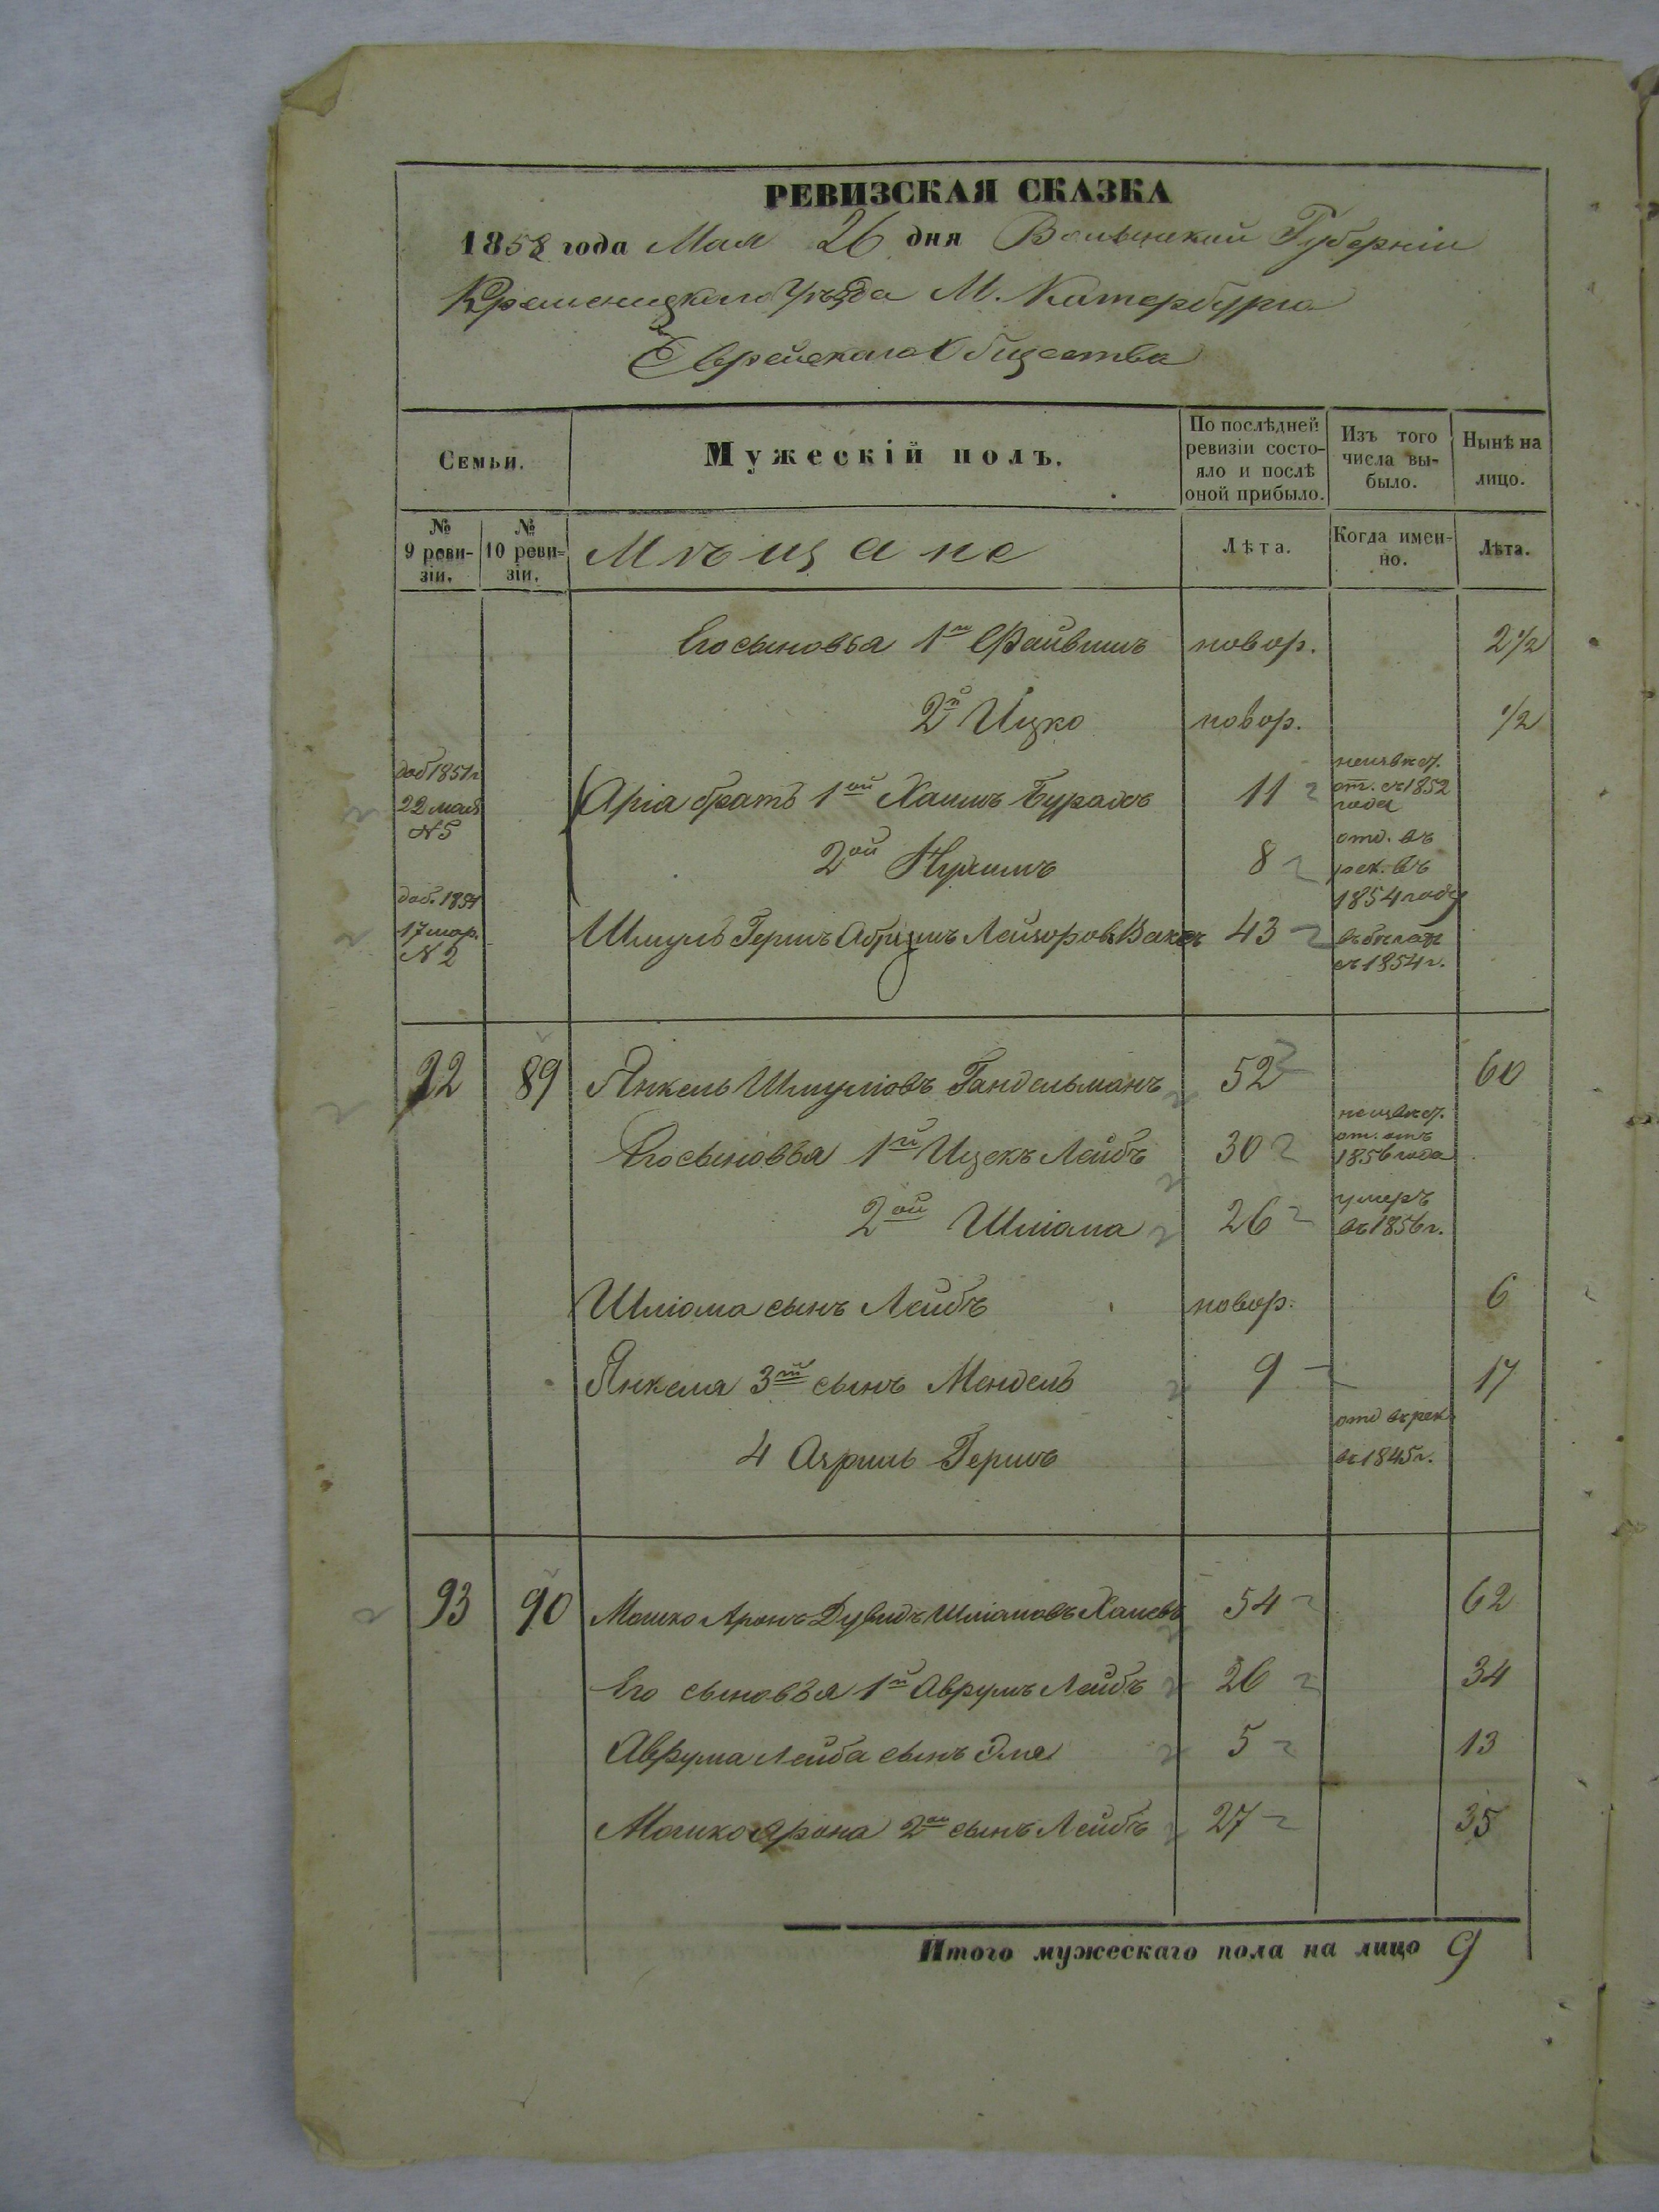 РЕВИЗСКАЯ СКАЗКА
1858 года Мая 26 дня Волынской Губерніи
Кременецкаго Уѣзда М. Катербурга
Еврейскаго Общества
Семьи.
Мужескій полъ.
По послѣдней ревизіи состо-яло и послѣ оной прибыло.
Изъ того числа вы-было.
Нынѣ на лицо.
№ 9 реви-зіи.
№ 10 реви-зіи.
Мѣщане
Лѣта.
Когда имен-но.
Лѣта.
Его сыновья 1й Файвишъ новор. 2 1/2
2й Ицко новор. 1/2
доб 1851 г 22 мая N 5
Арiя братъ 1ой Хаимъ 11 неизвѣс. от. съ 1852 года
2ой Нухимъ 8 отд. въ рек. въ 1854 году
доб. 1854 17 мар. N 2
Шмуль Гершъ Лейзоровъ 43 въ бѣгах съ 1854 г.
92 89 Янкель Шмуліовъ Гандельманъ 52 60
Его сыновья 1й Ицекъ Лейбъ 30 неизвѣс. от. отъ 1856 года
2ой Шліома 26 умеръ въ 1856 г.
Шліома сынъ Лейбъ новор. 6
Янкеля 3й сынъ Мендель 9 17
4 Азриль Гершъ отд въ рек въ 1845 г.
93 90 Мошко Аронъ Дувидъ Шліомовъ 54 62
Его сыновья 1й Аврумъ Лейбъ 26 34
Аврума Лейба сынъ Эля 5 13
Мошко Арона 2ой сынъ Лейбъ 27 35
Итого мужескаго пола на лицо 9